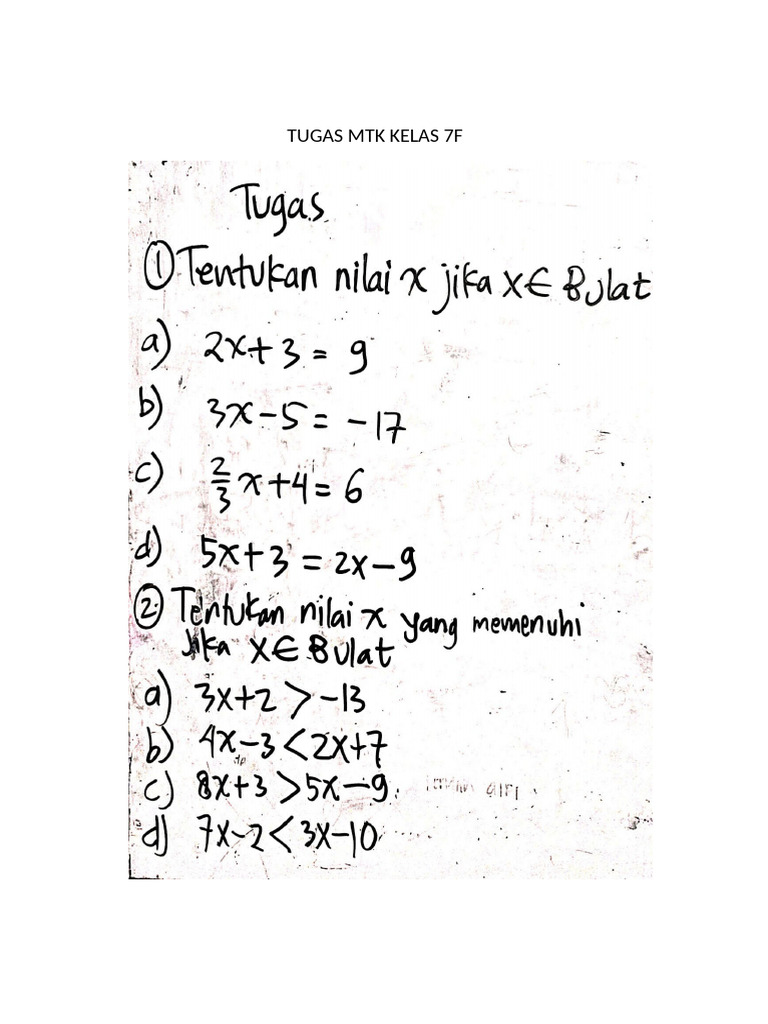 TUGAS MTK KELAS 7F
Tugas
① Tentukan nilai x jika x ∈ Bulat
a) 2x + 3 = 9
b) 3x - 5 = -17
c) 2/3 x + 4 = 6
d) 5x + 3 = 2x - 9
② Tentukan nilai x yang memenuhi
Jika x ∈ Bulat
a) 3x + 2 > -13
b) 4x - 3 < 2x + 7
c) 8x + 3 > 5x - 9
d) 7x - 2 < 3x - 10